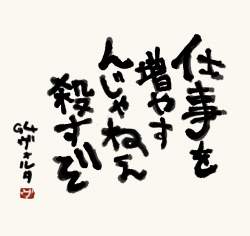 仕事を
増やす
んじゃねえ
殺すぞ
G4ザォルタ